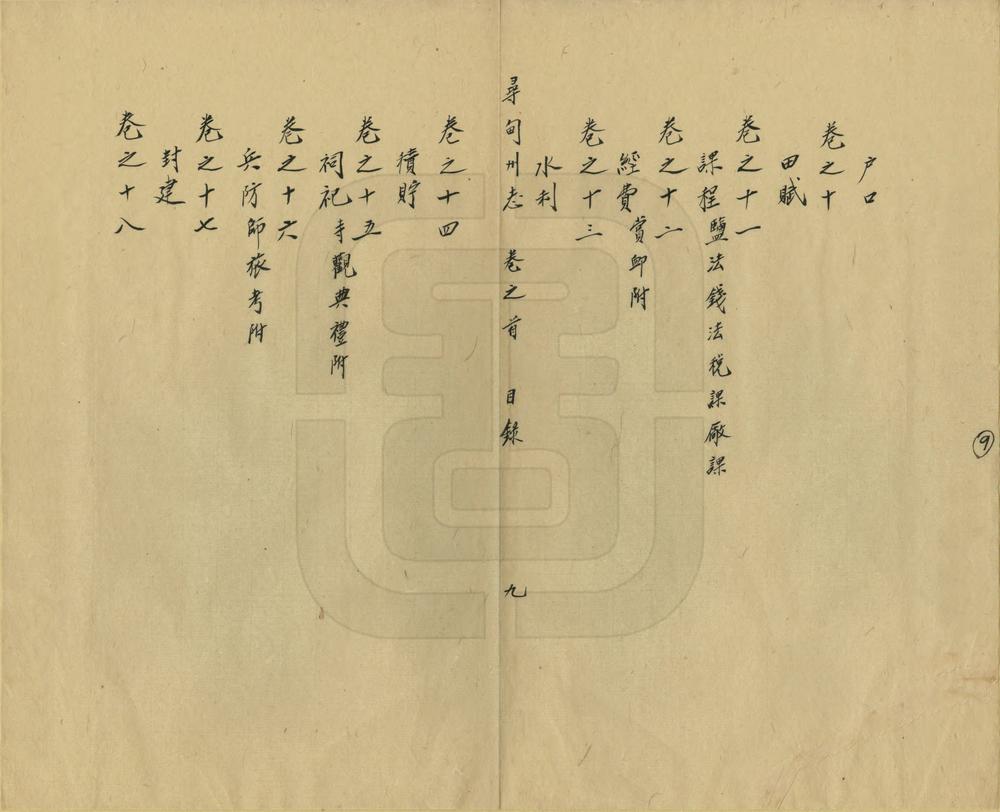 戶口
卷之十
田賦
卷之十一
課程鹽法錢法税課廠課
卷之十二
經費賞卹附
卷之十三
水利
尋甸州志 卷之首 目錄 九
卷之十四
積貯
卷之十五
祠祀寺觀典禮附
卷之十六
兵防師旅考附
卷之十七
封建
卷之十八
9